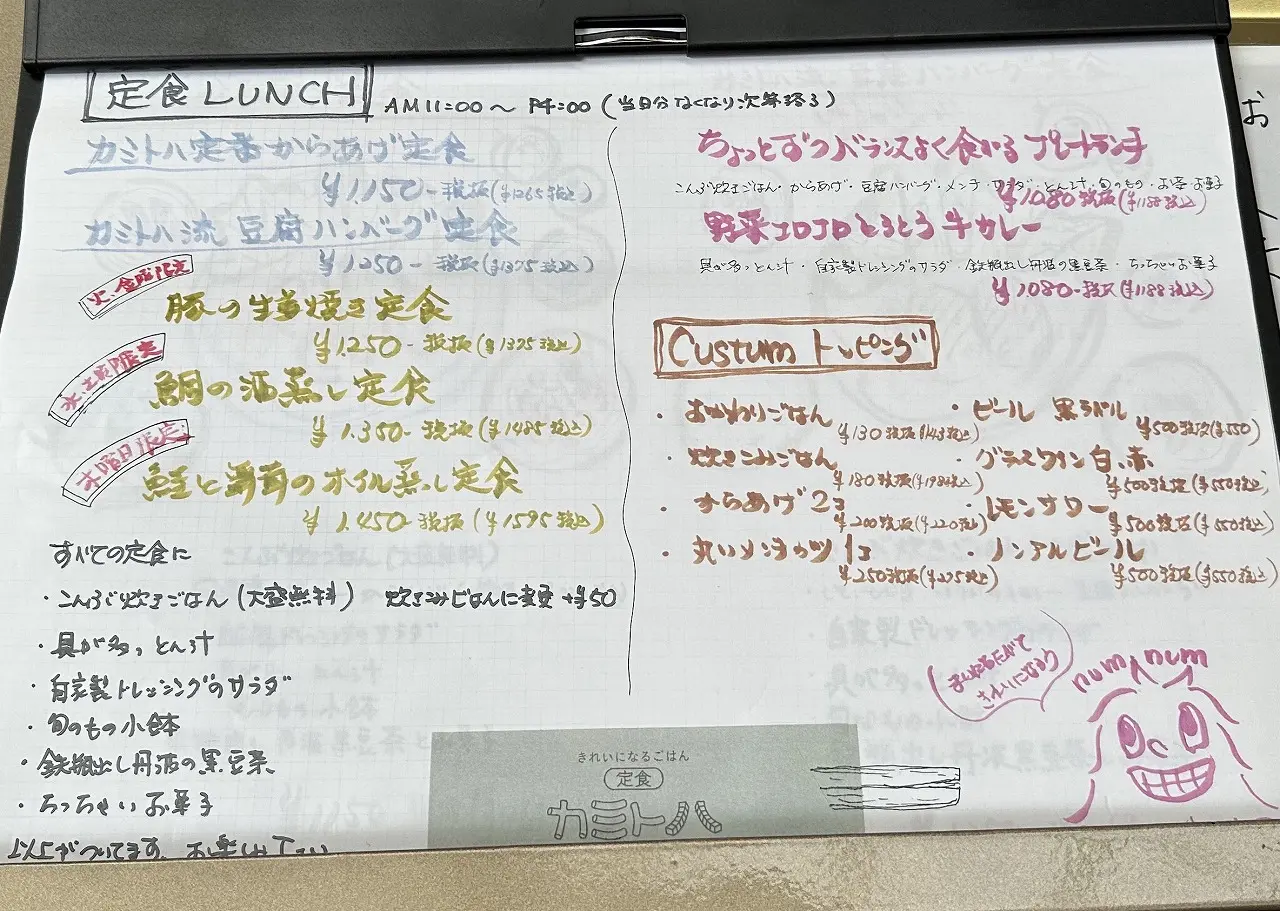 定食 LUNCH AM11:00〜PM4:00 (当日分なくなり次第終る)
カミトハ定番からあげ定食
¥1,150-税抜(¥1265税込)
カミトハ流 豆腐ハンバーグ定食
¥1250-税抜(¥1375税込)
火、金曜限定
豚の生姜焼き定食
¥1,250-税抜(¥1375税込)
水、土曜限定
鯛の酒蒸し定食
¥1,350-税抜(¥1485税込)
木曜日限定
鮭と茸のオイル蒸し定食
¥1,450-税抜(¥1595税込)
すべての定食に
・こんぶ炊きごはん(大盛無料) 炊きこみごはんに変更 +¥50
・具が多っとん汁
・自家製ドレッシングのサラダ
・旬のもの小鉢
・鉄瓶出し丹波の黒豆茶
・ちっちゃいお菓子
以上がついてます。お楽しみ下さい
ちょっとずつバランスよく食べる プレートランチ
こんぶ炊きごはん・からあげ・豆腐ハンバーグ・メンチ・サラダ・とん汁・旬のもの・お茶・お菓子
¥1,080税抜(¥1188税込)
野菜コロコロとろとろ牛カレー
具が多っとん汁・自家製ドレッシングのサラダ・鉄瓶出し丹波の黒豆茶・ちっちゃいお菓子
¥1080-税抜(¥1188税込)
Custum トッピング
・おかわりごはん
¥130税抜(¥143税込)
・炊きこみごはん
¥180税抜(¥198税込)
・からあげ2コ
¥200税抜(¥220税込)
・丸いメンチカツ1コ
¥250税抜(¥275税込)
・ビール 黒ラベル
¥500税抜(¥550)
・グラスワイン白、赤
¥500税抜(¥550税込)
・レモンサワー
¥500税抜(¥550税込)
・ノンアルビール
¥500税抜(¥550税込)
きれいになるねぇ
num num
きれいになるごはん
定食
カミトハ
お